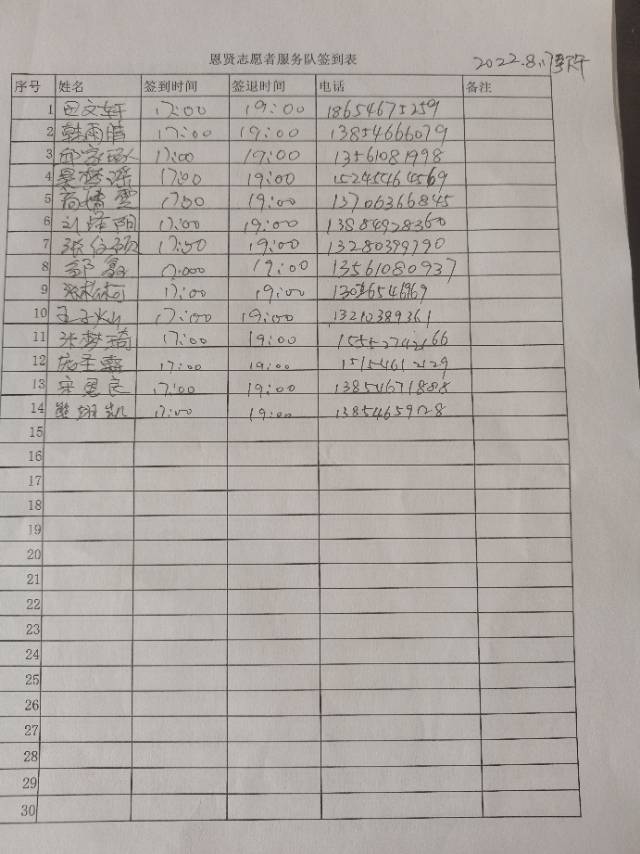 恩贤志愿者服务队签到表
2022.8.
序号 姓名 签到时间 签退时间 电话 备注
1 田文轩 17:00 19:00 18654675259
2 韩雨晴 17:00 19:00 13854666079
3 邱家 17:00 19:00 13561081998
4 吴梦瑶 17:00 19:00
5 高婧雯 17:00 19:00 13706366845
6 刘泽阳 17:00 19:00 13884928360
7 张 17:00 19:00 13280399790
8 郭磊 17:000 19:00 13561080937
9 17:00 19:00
10 王子 17:00 19:00 13210389361
11 张梦琦 17:00 19:00 15552742166
12 17:00 19:00
13 宋恩良 17:00 19:00 13854671888
14 熊翊凯 17:00 19:00 13854659728
15
16
17
18
19
20
21
22
23
24
25
26
27
28
29
30